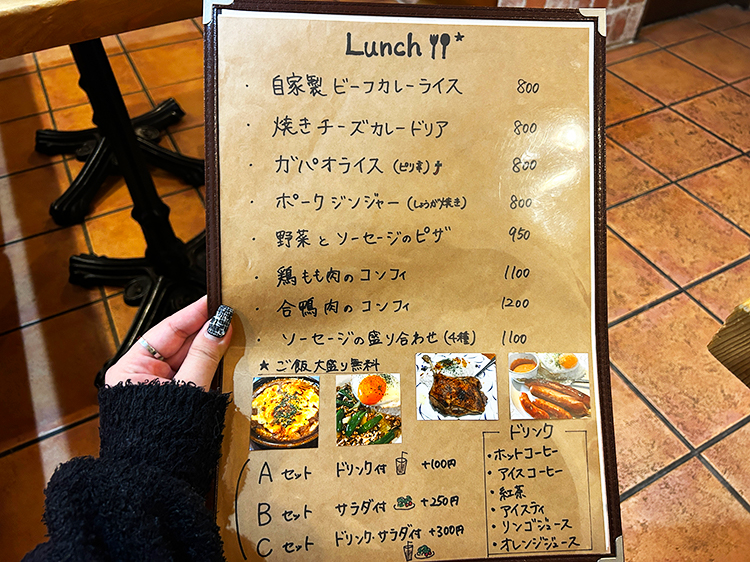 Lunch
・自家製 ビーフカレーライス 800
・焼きチーズカレードリア 800
・ガパオライス (ピリ辛) 800
・ポークジンジャー (しょうが焼き) 800
・野菜とソーセージのピザ 950
・鶏もも肉のコンフィ 1100
・合鴨肉のコンフィ 1200
・ソーセージの盛り合わせ (4種) 1100
★ご飯大盛り無料
Aセット ドリンク付 +100円
Bセット サラダ付 +250円
Cセット ドリンク・サラダ付 +300円
ドリンク
・ホットコーヒー
・アイスコーヒー
・紅茶
・アイスティ
・リンゴジュース
・オレンジジュース